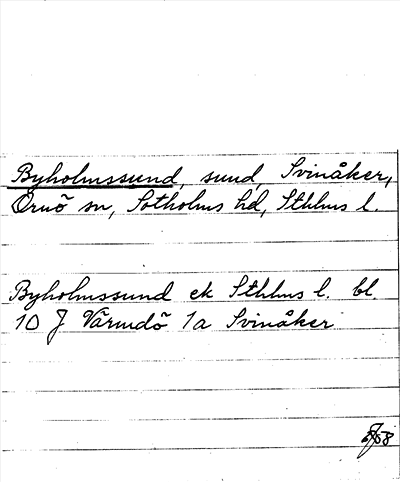 Byholmssund, sund, Svinåker,
Ornö sn, Sotholms hd, Sthlms l.
Byholmssund ek Sthlms l. bl
10 J Värmdö 1a Svinåker